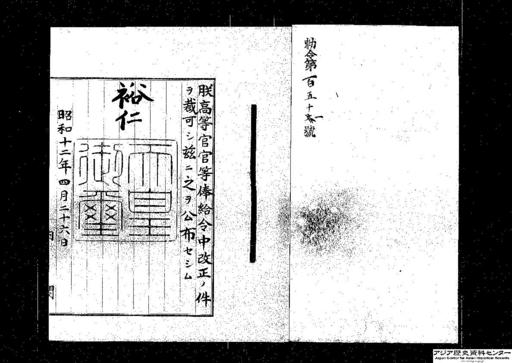 勅令第百五十一號
朕高等官官等俸給令中改正ノ件
ヲ裁可シ茲ニ之ヲ公布セシム
裕仁
天皇御璽
昭和十二年四月二十六日
アジア歴史資料センター
Japan Center for Asian Historical Records